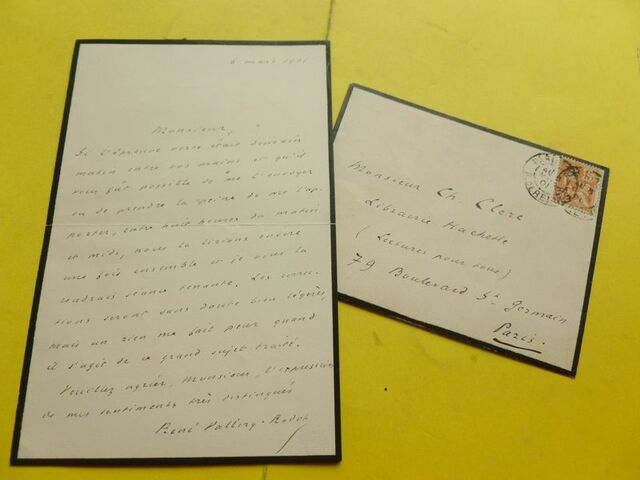 6 mars 1901
Monsieur,
Si l'épreuve verte était demain
matin entre vos mains et qu'il
vous fût possible de me l'envoyer
ou de prendre la peine de me l'ap-
porter, entre huit heures du matin
et midi, nous la lirions encore
une fois ensemble et je vous la
rendrais séance tenante. Les correc-
tions seront sans doute bien légères,
mais un rien me fait peur quand
il s'agit de ce grand sujet traité.
Veuillez agréer, Monsieur, l'expression
de mes sentiments très distingués
René Vallery-Radot
Monsieur Ch. Clerc
Librairie Hachette
(Lectures pour tous)
79 Boulevard St Germain
Paris.